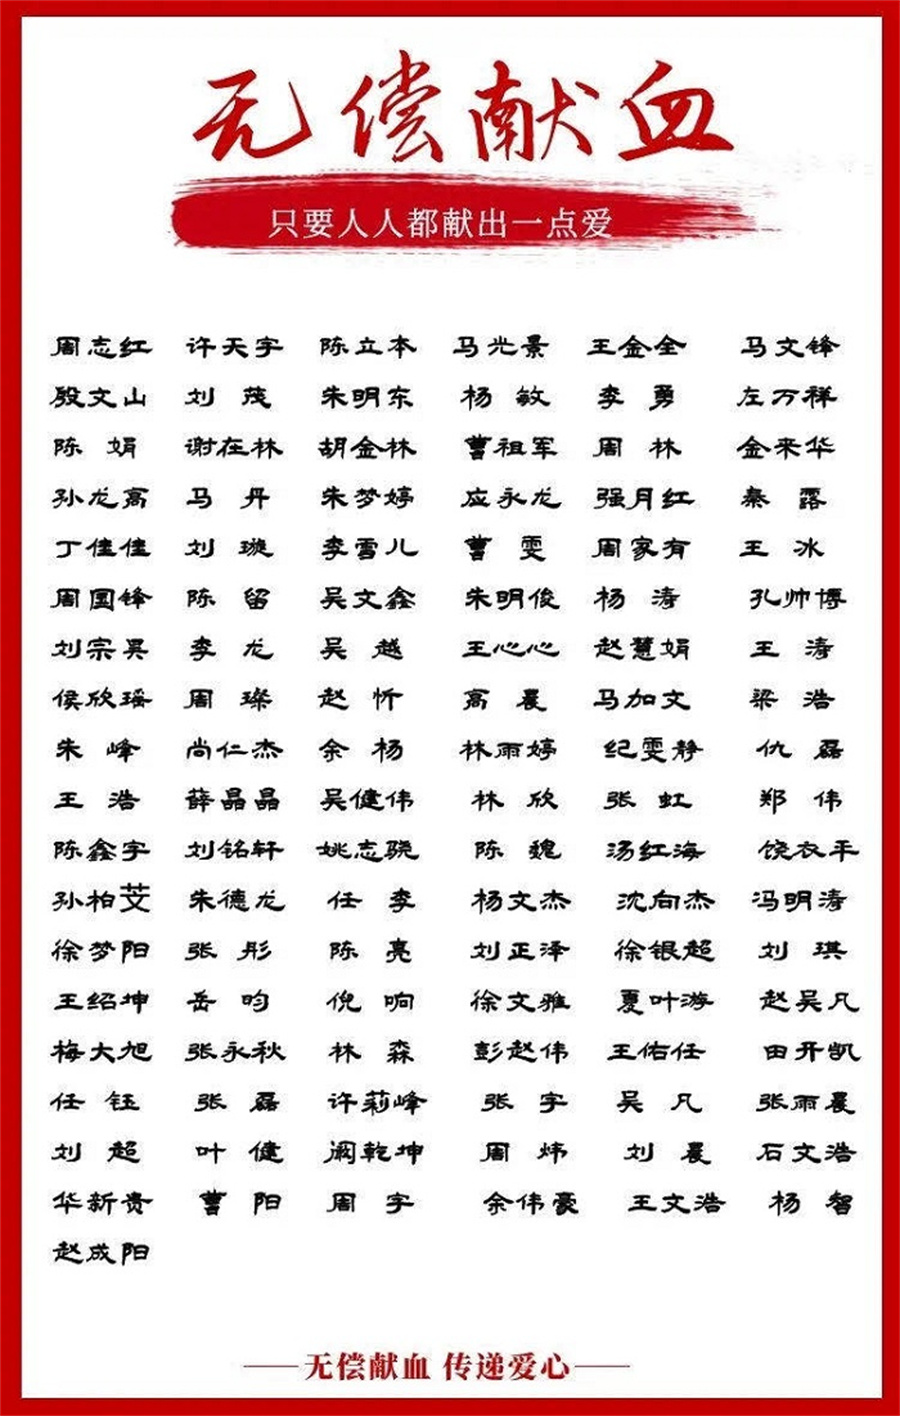 无偿献血
只要人人都献出一点爱
周志红 许天宇 陈立本 马光景 王金全 马文锋
殷文山 刘茂 朱明东 杨敏 李勇 左万祥
陈娟 谢在林 胡金林 曹祖军 周林 金来华
孙龙高 马丹 朱梦婷 应永龙 强月红 秦露
丁佳佳 刘璇 李雪儿 曹雯 周家有 王冰
周国锋 陈留 吴文鑫 朱明俊 杨涛 孔帅博
刘宗昊 李龙 吴越 王心心 赵慧娟 王涛
侯欣瑶 周璨 赵忻 高晨 马加文 梁浩
朱峰 尚仁杰 余杨 林雨婷 纪雯静 仇磊
王浩 薛晶晶 吴健伟 林欣 张虹 郑伟
陈鑫宇 刘铭轩 姚志骁 陈巍 汤红海 饶衣平
孙柏芠 朱德龙 任李 杨文杰 沈向杰 冯明涛
徐梦阳 张彤 陈亮 刘正泽 徐银超 刘琪
王绍坤 岳昀 倪响 徐文雅 夏叶游 赵吴凡
梅大旭 张永秋 林森 彭赵伟 王佑任 田开凯
任钰 张磊 许莉峰 张宇 吴凡 张雨晨
刘超 叶健 阚乾坤 周炜 刘晨 石文浩
华新贵 曹阳 周宇 余伟豪 王文浩 杨智
赵成阳
无偿献血 传递爱心